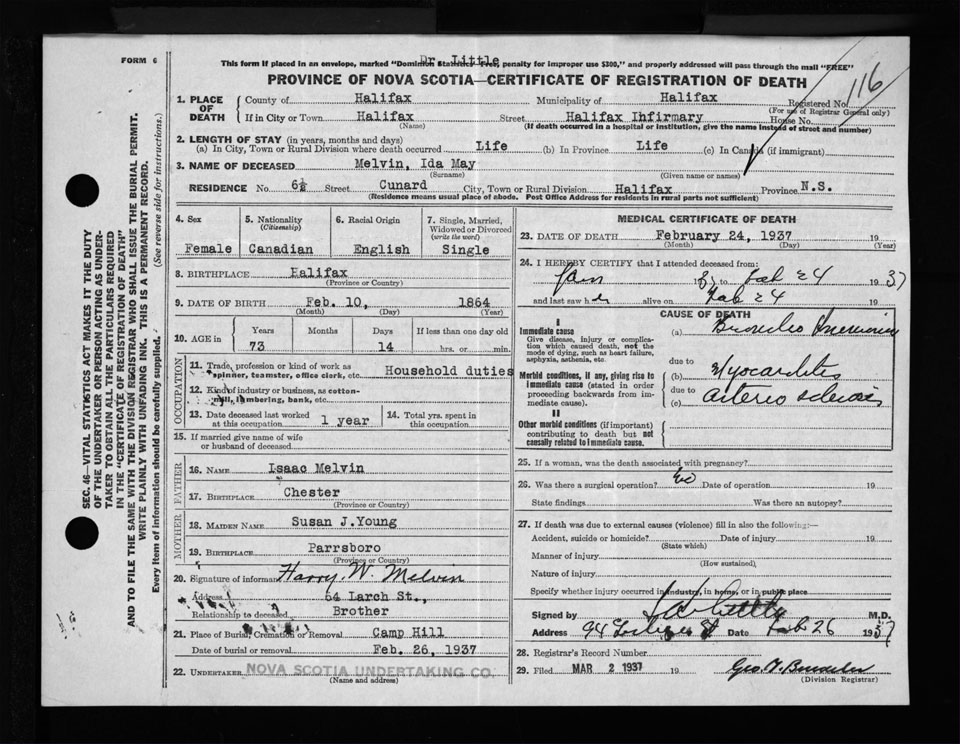 FORM 6
Dr Little
This form if placed in an envelope, marked "Dominion Statistics—Free, penalty for improper use $300," and properly addressed will pass through the mail "FREE"
PROVINCE OF NOVA SCOTIA—CERTIFICATE OF REGISTRATION OF DEATH
116
1. PLACE OF DEATH
County of Halifax Municipality of Halifax Registered No.
(For use of Registrar General only)
If in City or Town Halifax Street Halifax Infirmary House No.
(Name) (If death occurred in a hospital or institution, give the name instead of street and number)
2. LENGTH OF STAY (in years, months and days)
(a) In City, Town or Rural Division where death occurred Life (b) In Province Life (c) In Canada (if immigrant)
3. NAME OF DECEASED Melvin, Ida May
(Surname) (Given name or names)
RESIDENCE No. 6½ Street Cunard City, Town or Rural Division Halifax Province N.S.
(Residence means usual place of abode. Post Office Address for residents in rural parts not sufficient)
4. Sex 5. Nationality (Citizenship) 6. Racial Origin 7. Single, Married, Widowed or Divorced (write the word)
Female Canadian English Single
8. BIRTHPLACE Halifax
(Province or Country)
9. DATE OF BIRTH Feb. 10, 1864
(Month) (Day) (Year)
10. AGE in Years Months Days If less than one day old
73 14 hrs. or min.
OCCUPATION
11. Trade, profession or kind of work as spinner, teamster, office clerk, etc. Household duties
12. Kind of industry or business, as cotton-mill, lumbering, bank, etc.
13. Date deceased last worked at this occupation 1 year
14. Total yrs. spent in this occupation
15. If married give name of wife or husband of deceased
FATHER
16. NAME Isaac Melvin
17. BIRTHPLACE Chester
(Province or Country)
MOTHER
18. MAIDEN NAME Susan J.Young
19. BIRTHPLACE Parrsboro
(Province or Country)
20. Signature of informant Harry. W. Melvin
Address 64 Larch St.,
Relationship to deceased Brother
21. Place of Burial, Cremation or Removal Camp Hill
Date of burial or removal Feb. 26, 1937
22. UNDERTAKER NOVA SCOTIA UNDERTAKING CO.
(Name and address)
MEDICAL CERTIFICATE OF DEATH
23. DATE OF DEATH February 24, 1937 19
(Month) (Day) (Year)
24. I HEREBY CERTIFY that I attended deceased from:
Jan 19 to Feb 24 1937
and last saw her alive on Feb 24 19
CAUSE OF DEATH
I
Immediate cause
Give disease, injury or complication which caused death, not the mode of dying, such as heart failure, asphyxia, asthenia, etc.
(a) Broncho Pneumonia
due to
Morbid conditions, if any, giving rise to immediate cause (stated in order proceeding backwards from immediate cause).
(b) Myocarditis
due to
(c) arterio sclerosis
II
Other morbid conditions (if important) contributing to death but not causally related to immediate cause.
25. If a woman, was the death associated with pregnancy?
26. Was there a surgical operation? No Date of operation 19
State findings Was there an autopsy?
27. If death was due to external causes (violence) fill in also the following:—
Accident, suicide or homicide? Date of injury 19
(State which)
Manner of injury
(How sustained)
Nature of injury
Specify whether injury occurred in industry, in home, or in public place
Signed by M.D.
Address 94 Date Feb 26 1937
28. Registrar's Record Number
29. Filed MAR 2 1937 19
(Division Registrar)
SEC. 46—VITAL STATISTICS ACT MAKES IT THE DUTY
OF THE UNDERTAKER OR PERSON ACTING AS UNDER-
TAKER TO OBTAIN ALL THE PARTICULARS REQUIRED
IN THE "CERTIFICATE OF REGISTRATION OF DEATH"
AND TO FILE THE SAME WITH THE DIVISION REGISTRAR WHO SHALL ISSUE THE BURIAL PERMIT.
WRITE PLAINLY WITH UNFADING INK. THIS IS A PERMANENT RECORD.
Every item of information should be carefully supplied. (See reverse side for instructions.)